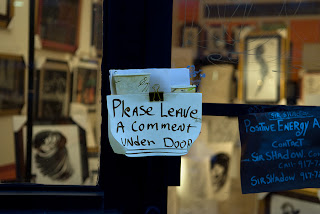 Please Leave
A Comment
Under Door
Positive Energy A
Contact
Sir Shadow
Call 917-7
Sir Shadow 917-7